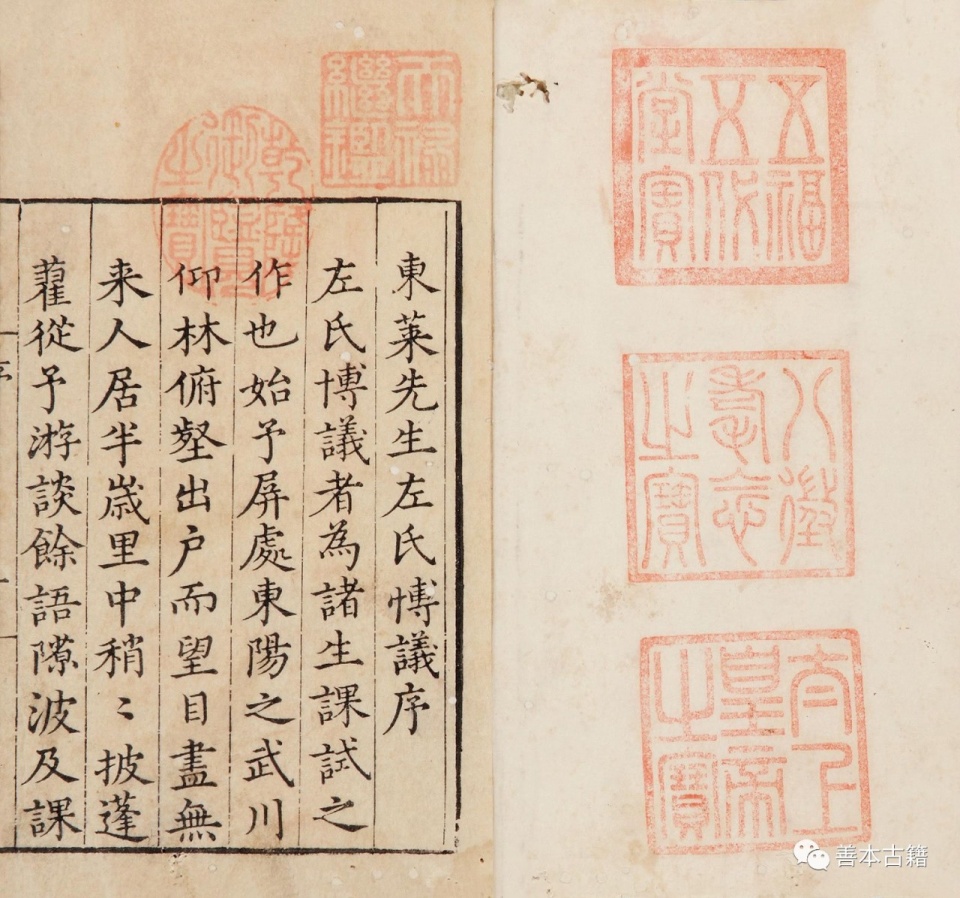 五福
五代
堂寶
八徵
耄念
之寶
太上
皇帝
之寶
天祿
繼鑑
乾隆
御覽
之寶
東萊先生左氏愽議序
左氏博議者為諸生課試之
作也始予屏處東陽之武川
仰林俯壑出户而望目盡無
来人居半歳里中稍〻披蓬
藋從予游談餘語隙波及課
善本古籍